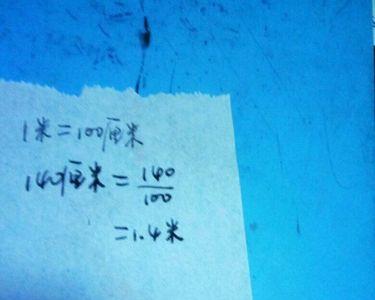 1米=100厘米
140厘米=140/100
=1.4米